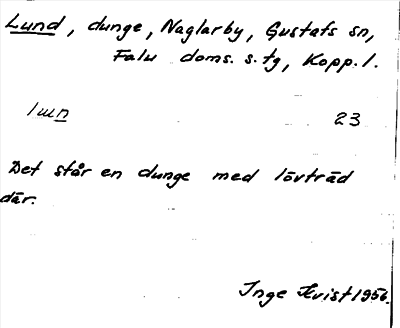 Lund, dunge, Naglarby, Gustafs sn,
Falu doms. s. tg, Kopp. l.
luun 23
Det står en dunge med lövträd
där.
Inge Kvist 1956.